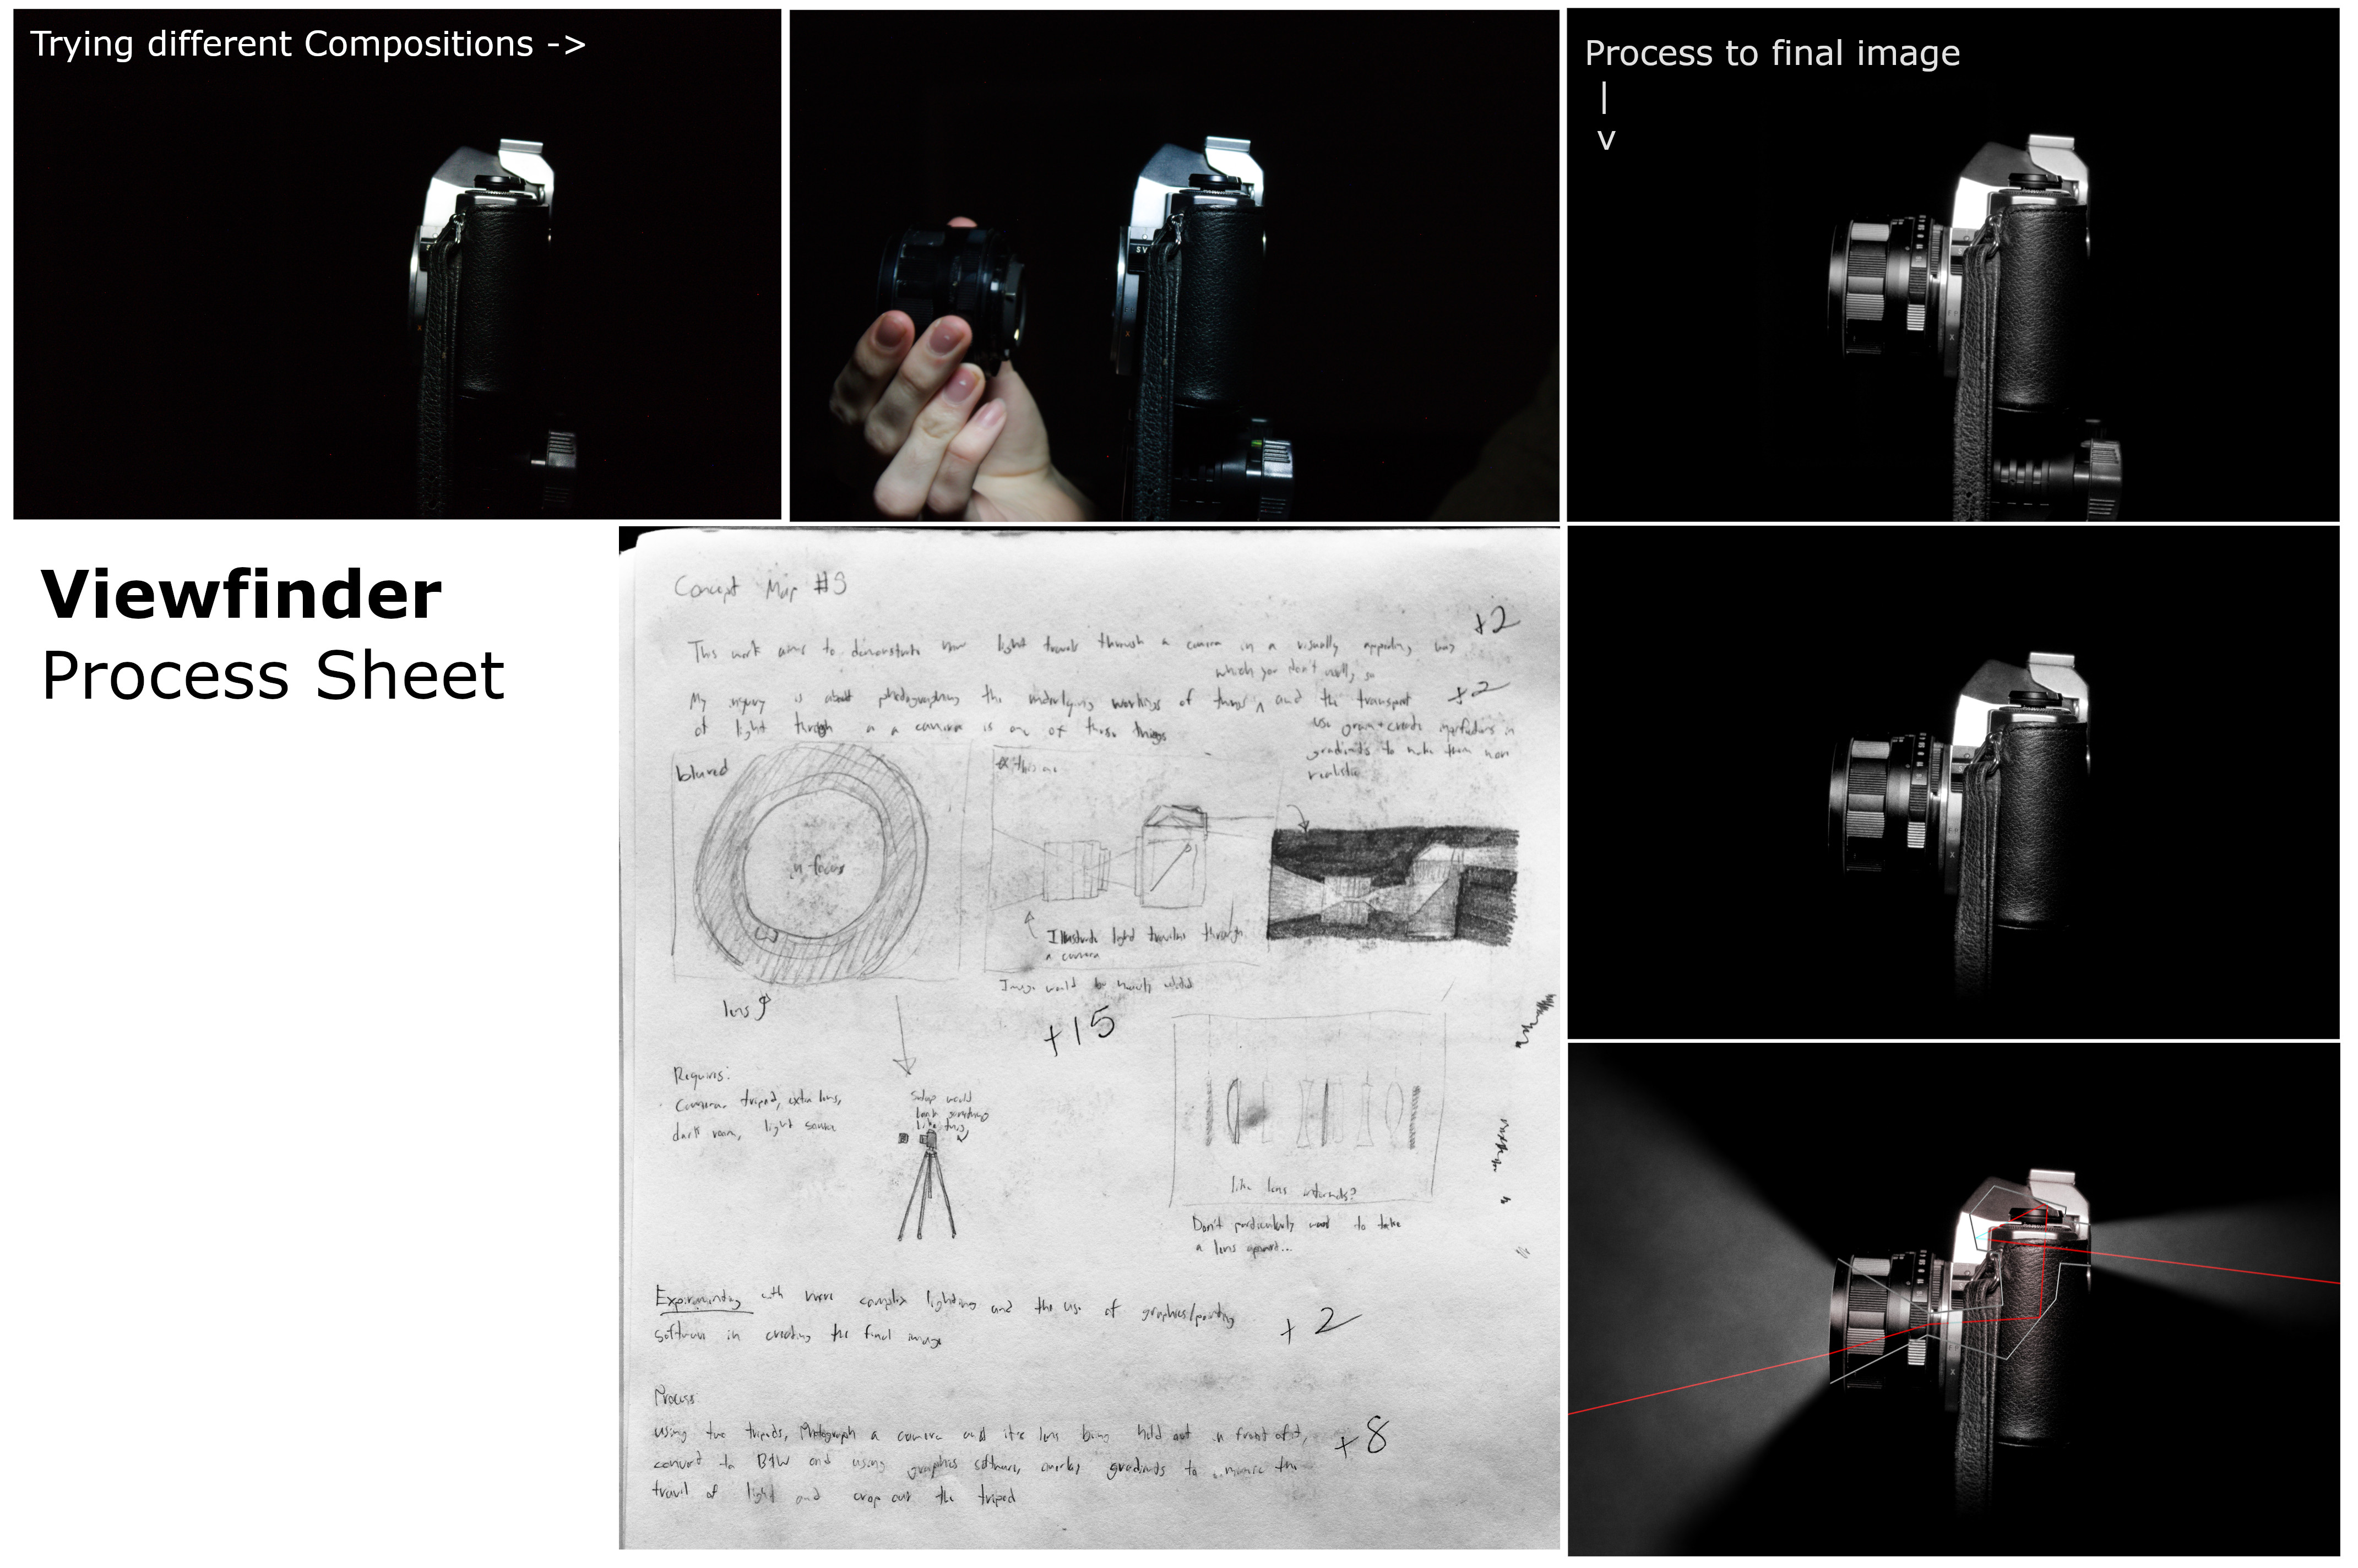 Trying different Compositions ->
Process to final image
|
v
Viewfinder
Process Sheet
Concept Map #3
+2
This work aims to demonstrate how light travels through a camera in a visually appealing way
which you don't usually see
My inquiry is about photographing the underlying workings of things ^ and the transport
+2
of light through a a camera is one of those things
use grain + create imperfections in
gradients to make them more
realistic
blured
in focus
this one
Illustrate light traveling through
a camera
Image would be heavily edited
lens
+15
Requires:
Camera, tripod, extra lens,
dark room, light source
Setup would
look something
like this
like lens internals?
Don't particularly want to take
a lens apart...
Experimenting with more complex lighting and the use of graphics/painting
software in creating the final image
+2
Process
using two tripods, Photograph a camera and it's lens being held out in front of it,
+8
convert to B+W and using graphics software, overlay gradients to mimic the
travel of light and crop out the tripod
SV
X
X
X
X
X